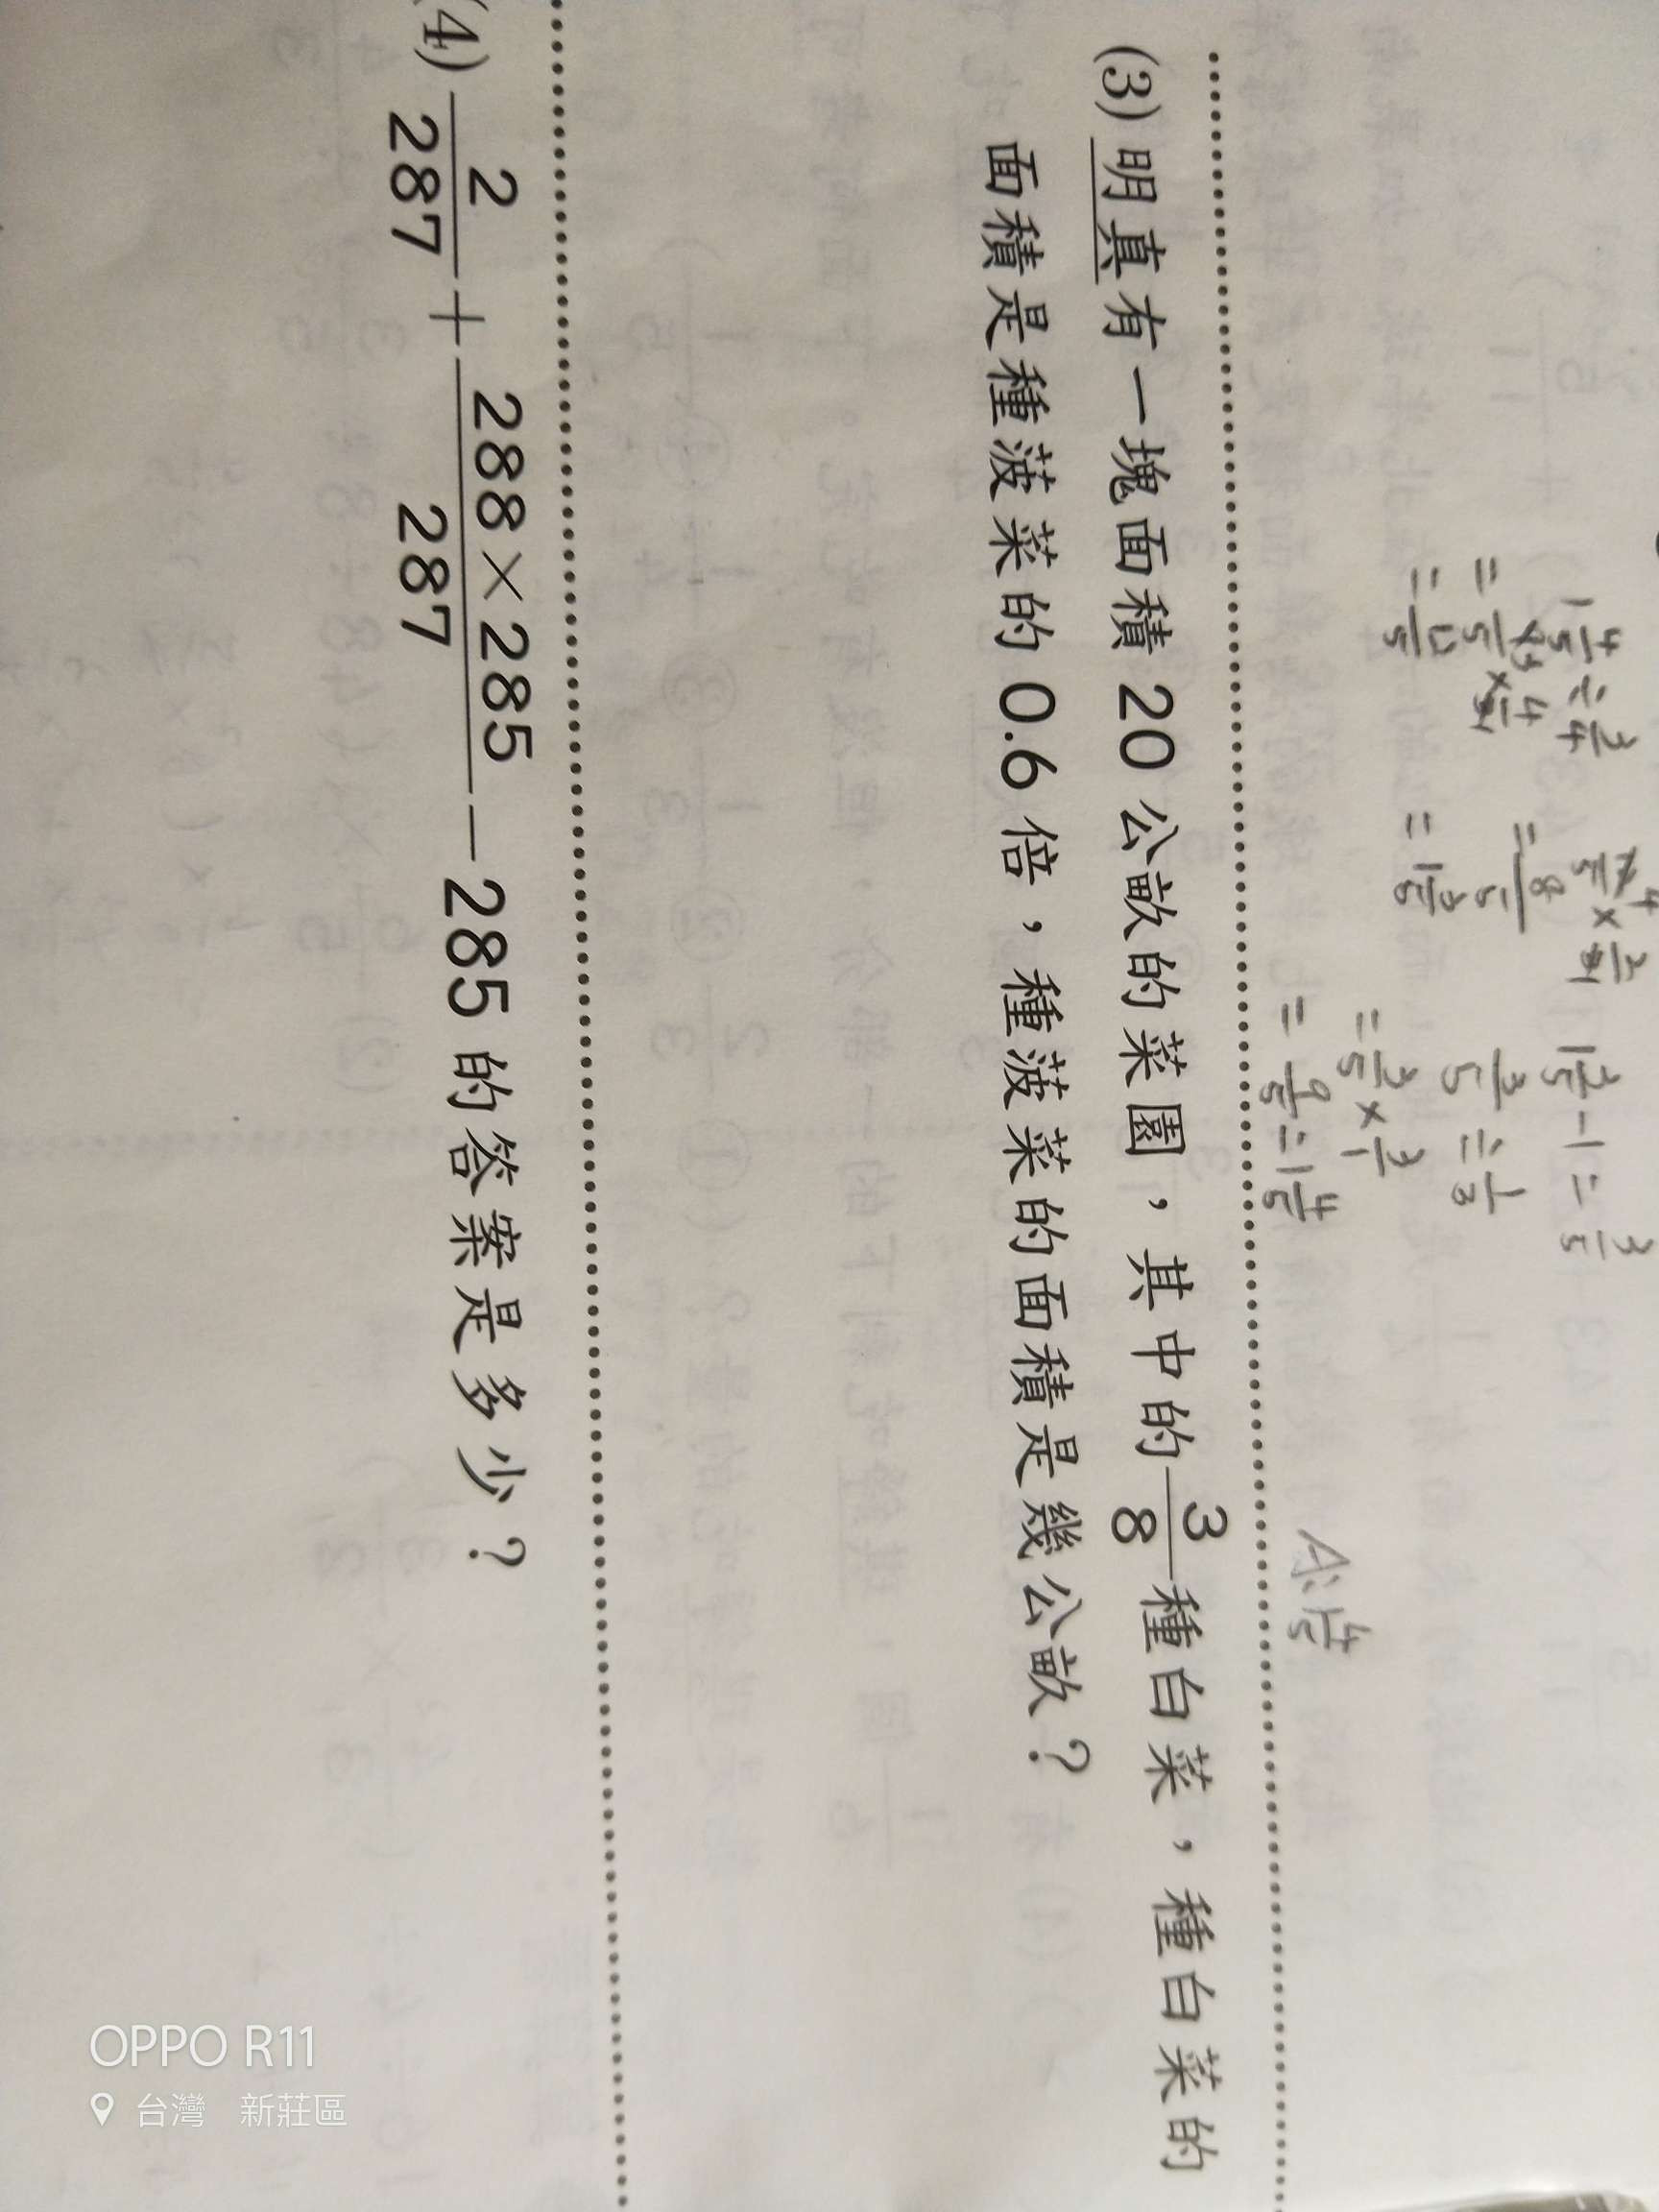 1 4/5 ÷ 3/4
4/5 × 2/3
1 3/5 - 1 = 3/5
= 8/5
3/5 ÷ 1/3
= 12/5
= 1 3/5
= 3/5 × 3/1
= 9/5 = 1 4/5
A: 1 4/5
(3) 明真有一塊面積 20 公畝的菜園，其中的 3/8 種白菜，種白菜的
面積是種菠菜的 0.6 倍，種菠菜的面積是幾公畝？
(4) 2/287 + 288×285/287 － 285 的答案是多少？
OPPO R11
台灣 新莊區